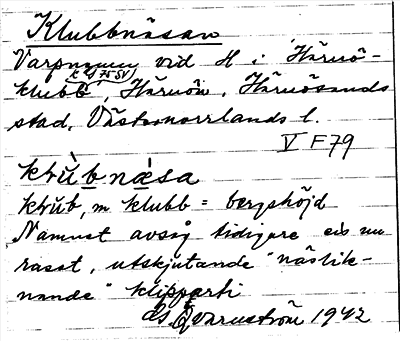 Klubbnäsan
Varpnamn vid H i Härnö-
klubb, Härnön, Härnösands
stad, Västernorrlands l.
V F79
klùbnæsa
klub, m klubb = bergshöjd
Namnet avsåg tidigare en nu
rasat, utskjutande "näslik-
nande" klipparti
Qvarnström 1942